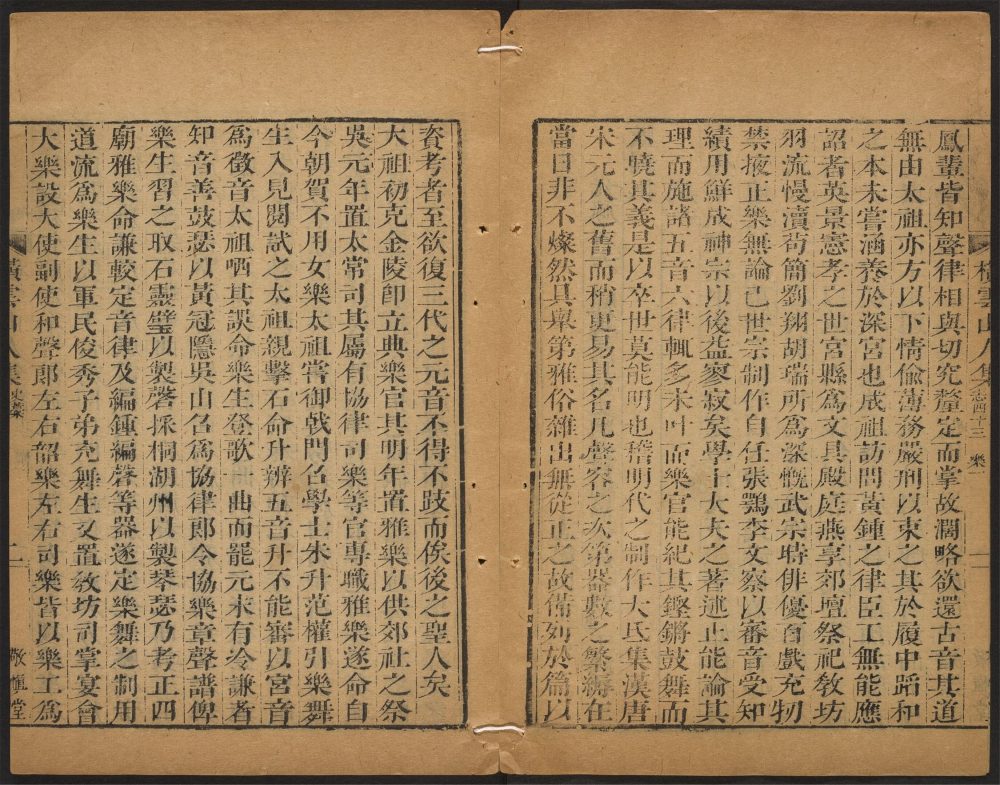 橫雲山人集 志四十三 樂 一
鳳輩皆知聲律相與切究釐定而掌故濶略欲還古音其道
無由太祖亦方以下情偷薄務嚴刑以束之其於履中蹈和
之本未嘗涵養於深宮也成祖訪問黃鍾之律臣工無能應
詔者英景憲孝之世宮縣爲文具殿庭燕享郊壇祭祀敎坊
羽流慢瀆苟簡劉翔胡瑞所爲深慨武宗時俳優百戲充牣
禁掖正樂無論已世宗制作自任張鶚李文察以審音受知
績用鮮成神宗以後益寥寂矣學士大夫之著述止能論其
理而施諸五音六律輒多未叶而樂官能紀其鏗鏘鼓舞而
不曉其義是以卒世莫能明也稽明代之制作大氐集漢唐
宋元人之舊而稍更易其名凡聲容之次第器數之繁縟在
當日非不燦然具舉第雅俗雜出無從正之故備列於篇以
資考者至欲復三代之元音不得不跂而俟後之聖人矣
太祖初克金陵卽立典樂官其明年置雅樂以供郊社之祭
吳元年置太常司其屬有協律司樂等官專職雅樂遂命自
今朝賀不用女樂太祖嘗御戟門召學士朱升范權引樂舞
生入見閱試之太祖親擊石命升辨五音升不能審以宮音
爲徵音太祖哂其誤命樂生登歌曲而罷元末有冷謙者
知音善鼓瑟以黃冠隱吳山召爲協律郎令協樂章聲譜俾
樂生習之取石靈璧以製磬採桐湖州以製琴瑟乃考正四
廟雅樂命謙較定音律及編鍾編磬等器遂定樂舞之制用
道流爲樂生以軍民俊秀子弟充舞生又置敎坊司掌宴會
大樂設大使副使和聲郎左右韶樂左右司樂皆以樂工爲
橫雲山人集 史藁 二 敬愼堂